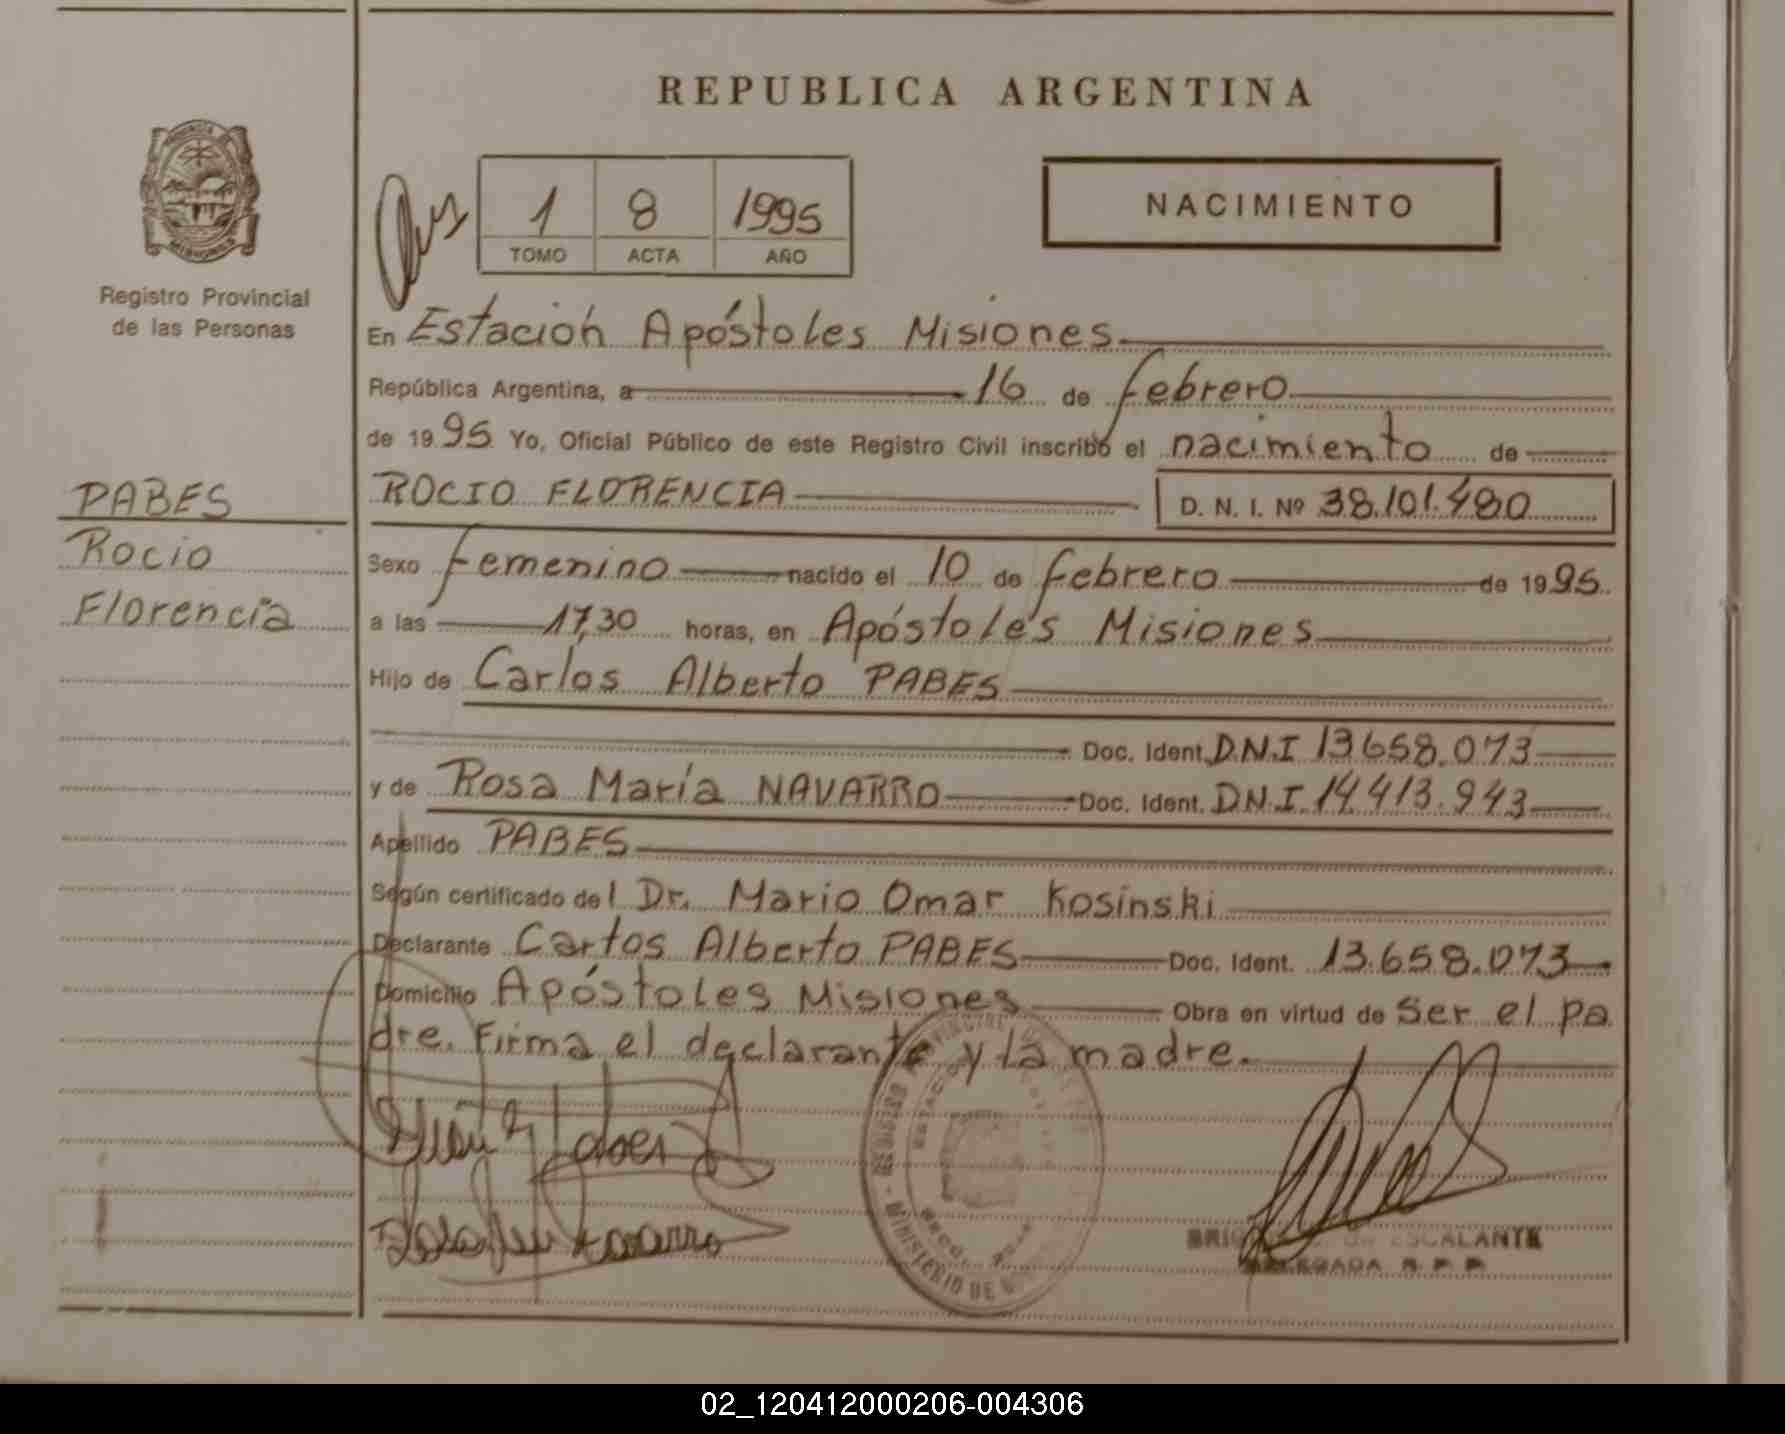 REPUBLICA ARGENTINA
1 8 1995
TOMO ACTA AÑO
NACIMIENTO
MISIONES
Registro Provincial
de las Personas
En Estación Apóstoles Misiones
República Argentina, a 16 de febrero
de 1995 Yo, Oficial Público de este Registro Civil inscribo el nacimiento de
PABES
ROCIO FLORENCIA D. N. I. Nº 38.101.480
Rocio
Sexo femenino nacido el 10 de febrero de 1995
Florencia
a las 17,30 horas, en Apóstoles Misiones
Hijo de Carlos Alberto PABES
Doc. Ident. D.N.I 13.658.073
y de Rosa María NAVARRO Doc. Ident. D.N.I. 14.413.943
Apellido PABES
Según certificado del Dr. Mario Omar Kosinski
Declarante Carlos Alberto PABES Doc. Ident. 13.658.073
Domicilio Apóstoles Misiones Obra en virtud de Ser el pa
dre. Firma el declarante y la madre.
REGISTRO PROVINCIAL
MINISTERIO DE
ESCALANTE
DELEGADA R.P.P.
02_120412000206-004306